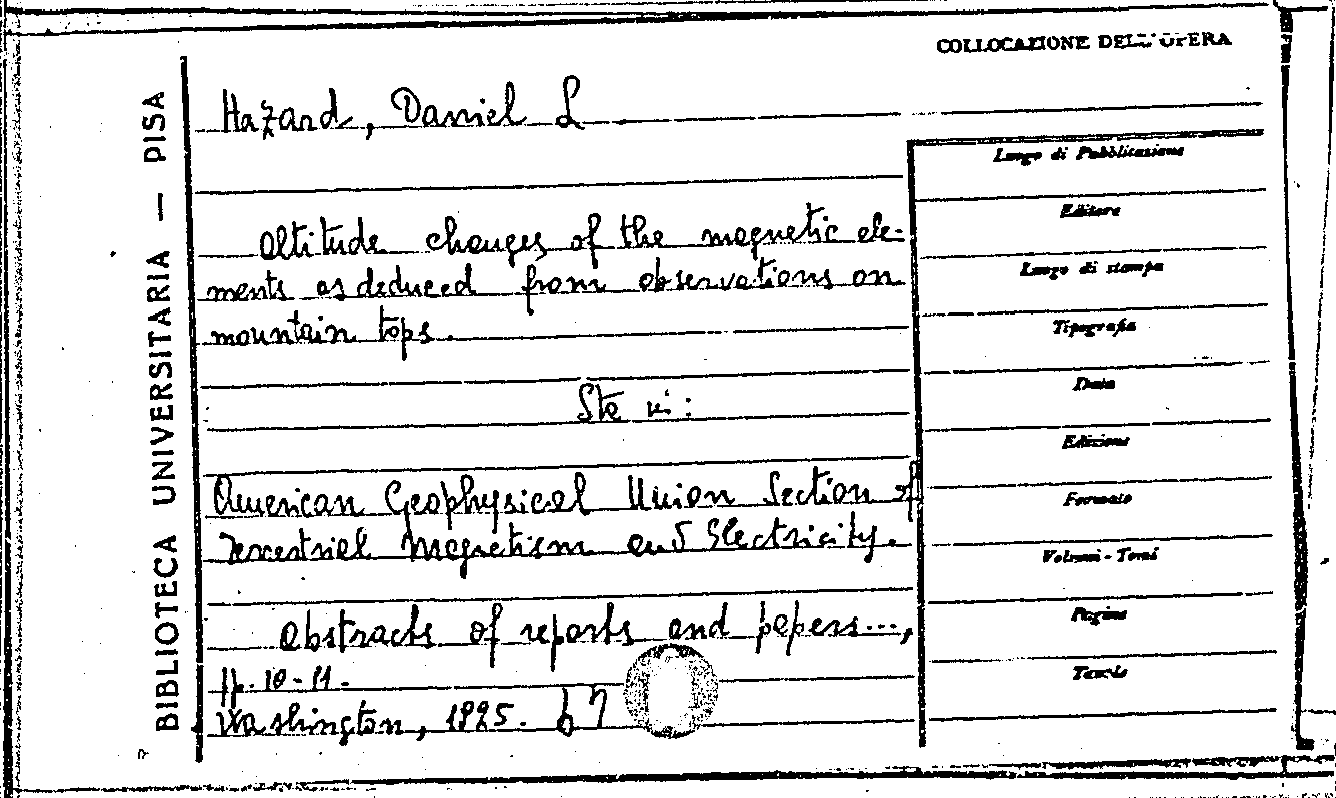 COLLOCAZIONE DELL'OPERA
BIBLIOTECA UNIVERSITARIA — PISA
Hazard, Daniel L
altitude changes of the magnetic ele-
ments as deduced from observations on
mountain tops.
Sta in:
American Geophysical Union Section of
Terrestrial Magnetism and Electricity.
Abstracts of reports and papers...,
pp. 10-11.
Washington, 1925. 67
Luogo di Pubblicazione
Editore
Luogo di stampa
Tipografia
Data
Edizione
Formato
Volumi - Tomi
Pagine
Tavole